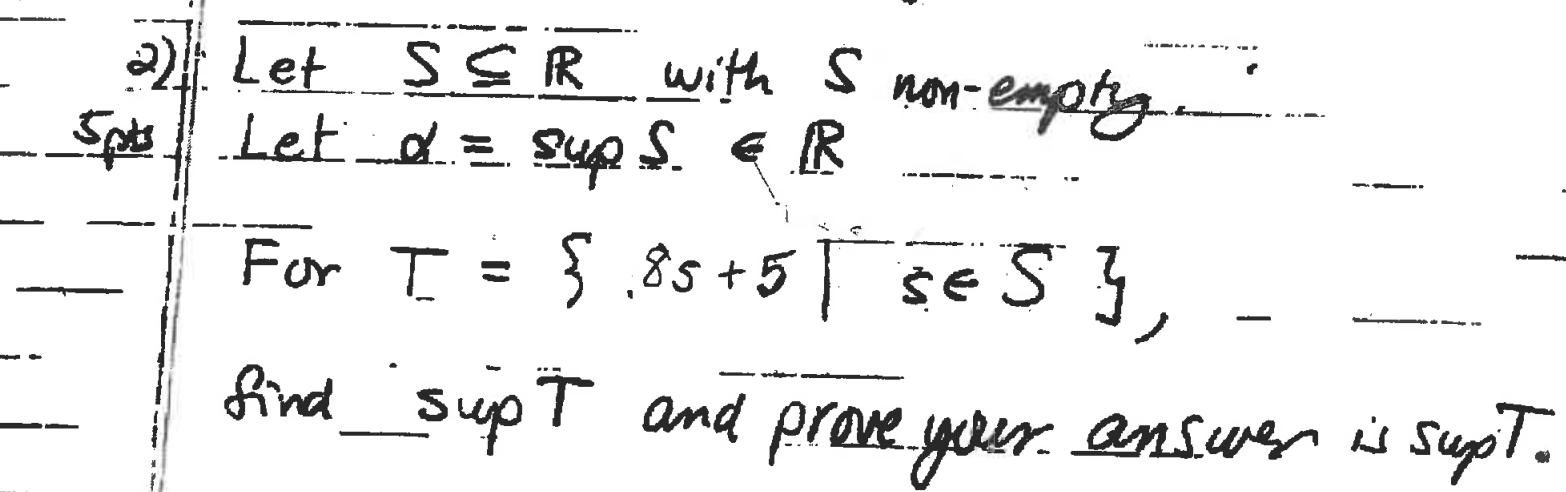 2) Let S ⊆ ℝ with S non-empty.
5pts Let α = sup S ∈ ℝ
For T = { .8s + 5 | s ∈ S },
find sup T and prove your answer is sup T.